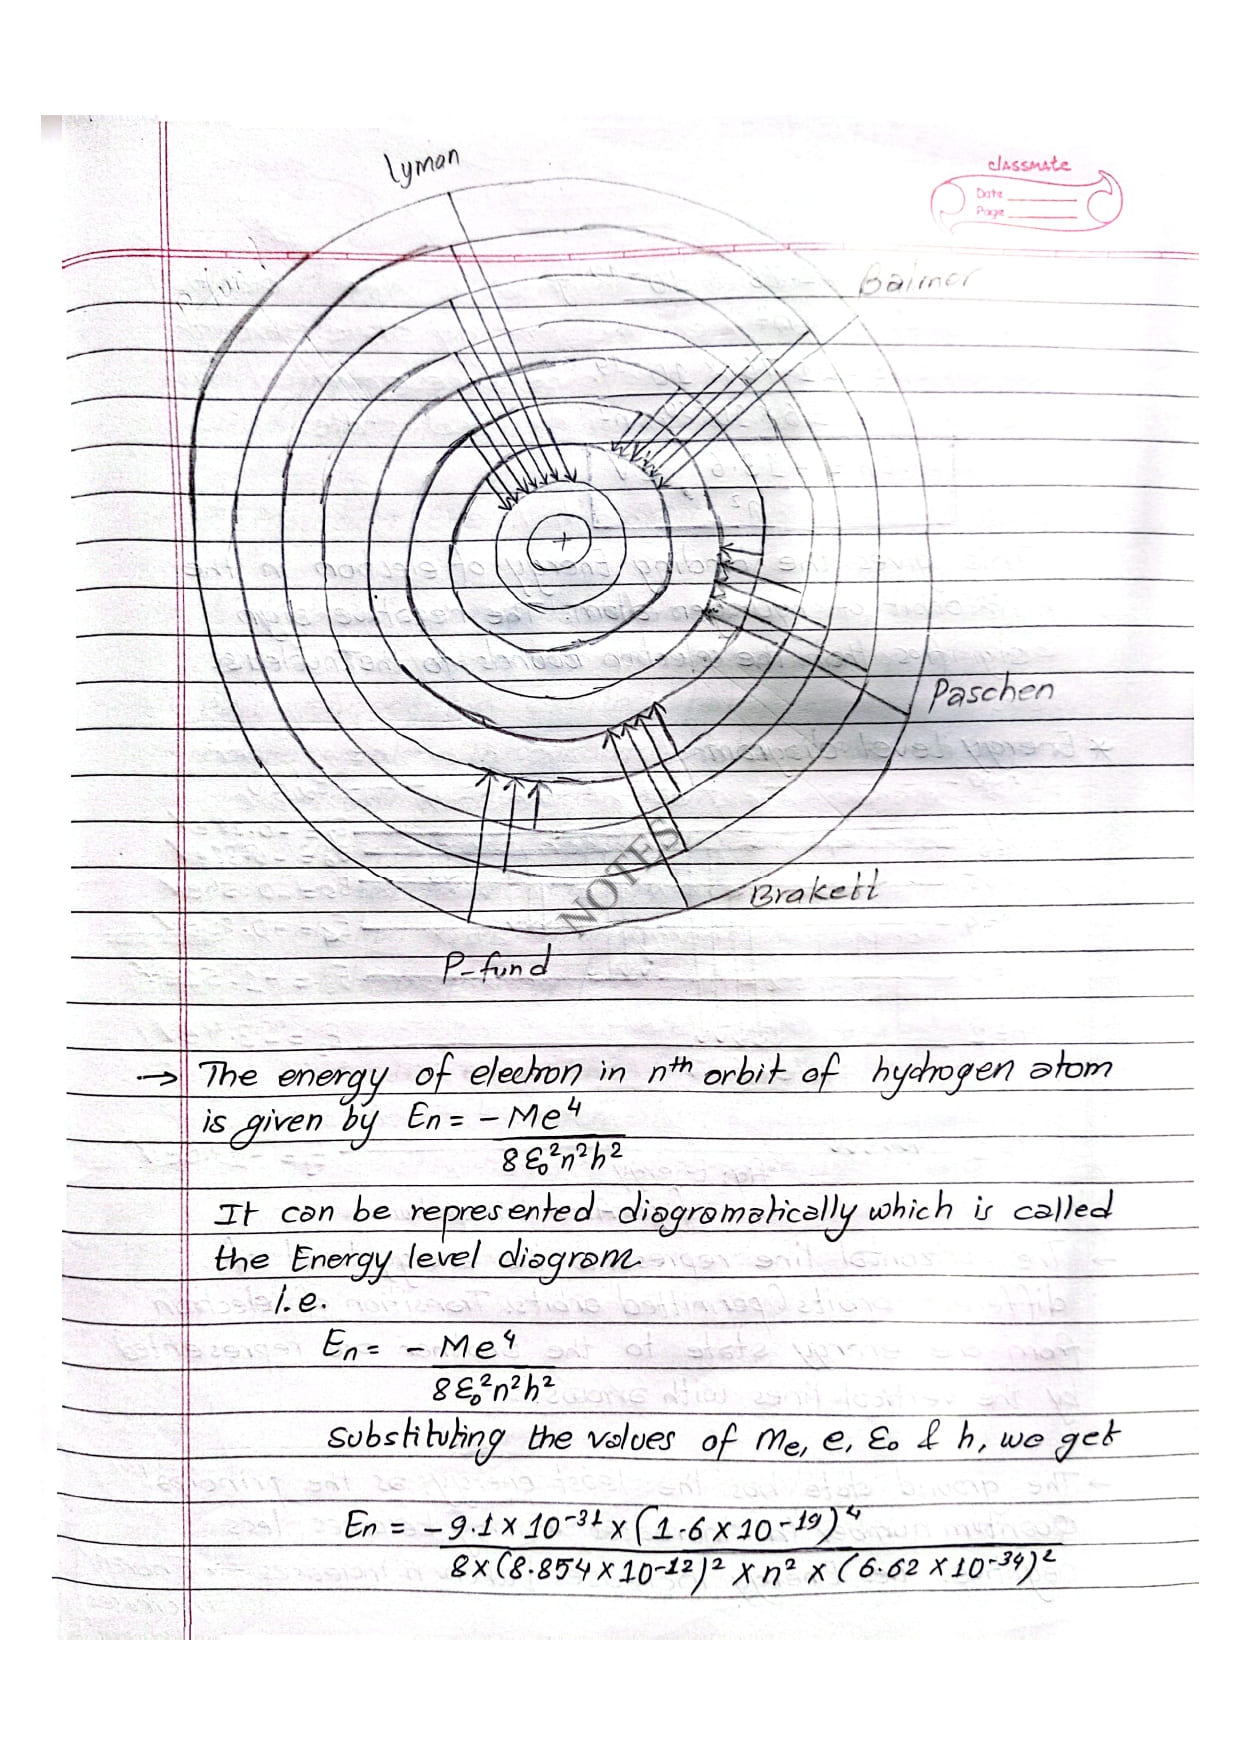 Lyman
classmate
Date
Page
Balmer
Paschen
NOTES
Brakett
P-fund
→ The energy of electron in nth orbit of hydrogen atom
is given by En = - Me⁴
8 ε₀²n²h²
It can be represented diagramatically which is called
the Energy level diagram.
i.e.
En = - Me⁴
8 ε₀²n²h²
Substituting the values of Me, e, ε₀ & h, we get
En = - 9.1 x 10⁻³¹ x (1.6 x 10⁻¹⁹)⁴
8 x (8.854 x 10⁻¹²)² x n² x (6.62 x 10⁻³⁴)²